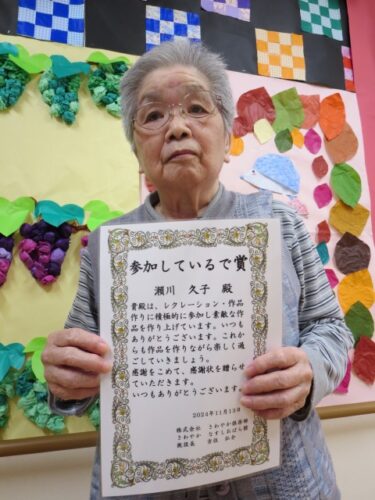 参加しているで賞
瀬川　久子　殿
貴殿は、レクレーション・作品
作りに積極的に参加し素敵な作
品を作り上げています。いつも
ありがとうございます。これか
らも作品を作りながら楽しく過
ごしていきましょう。
感謝をこめて、感謝状を贈らせ
ていただきます。
いつもありがとうございます。
2024年11月13日
株式会社　さわやか倶楽部
さわやか　なすしおばら館
施設長